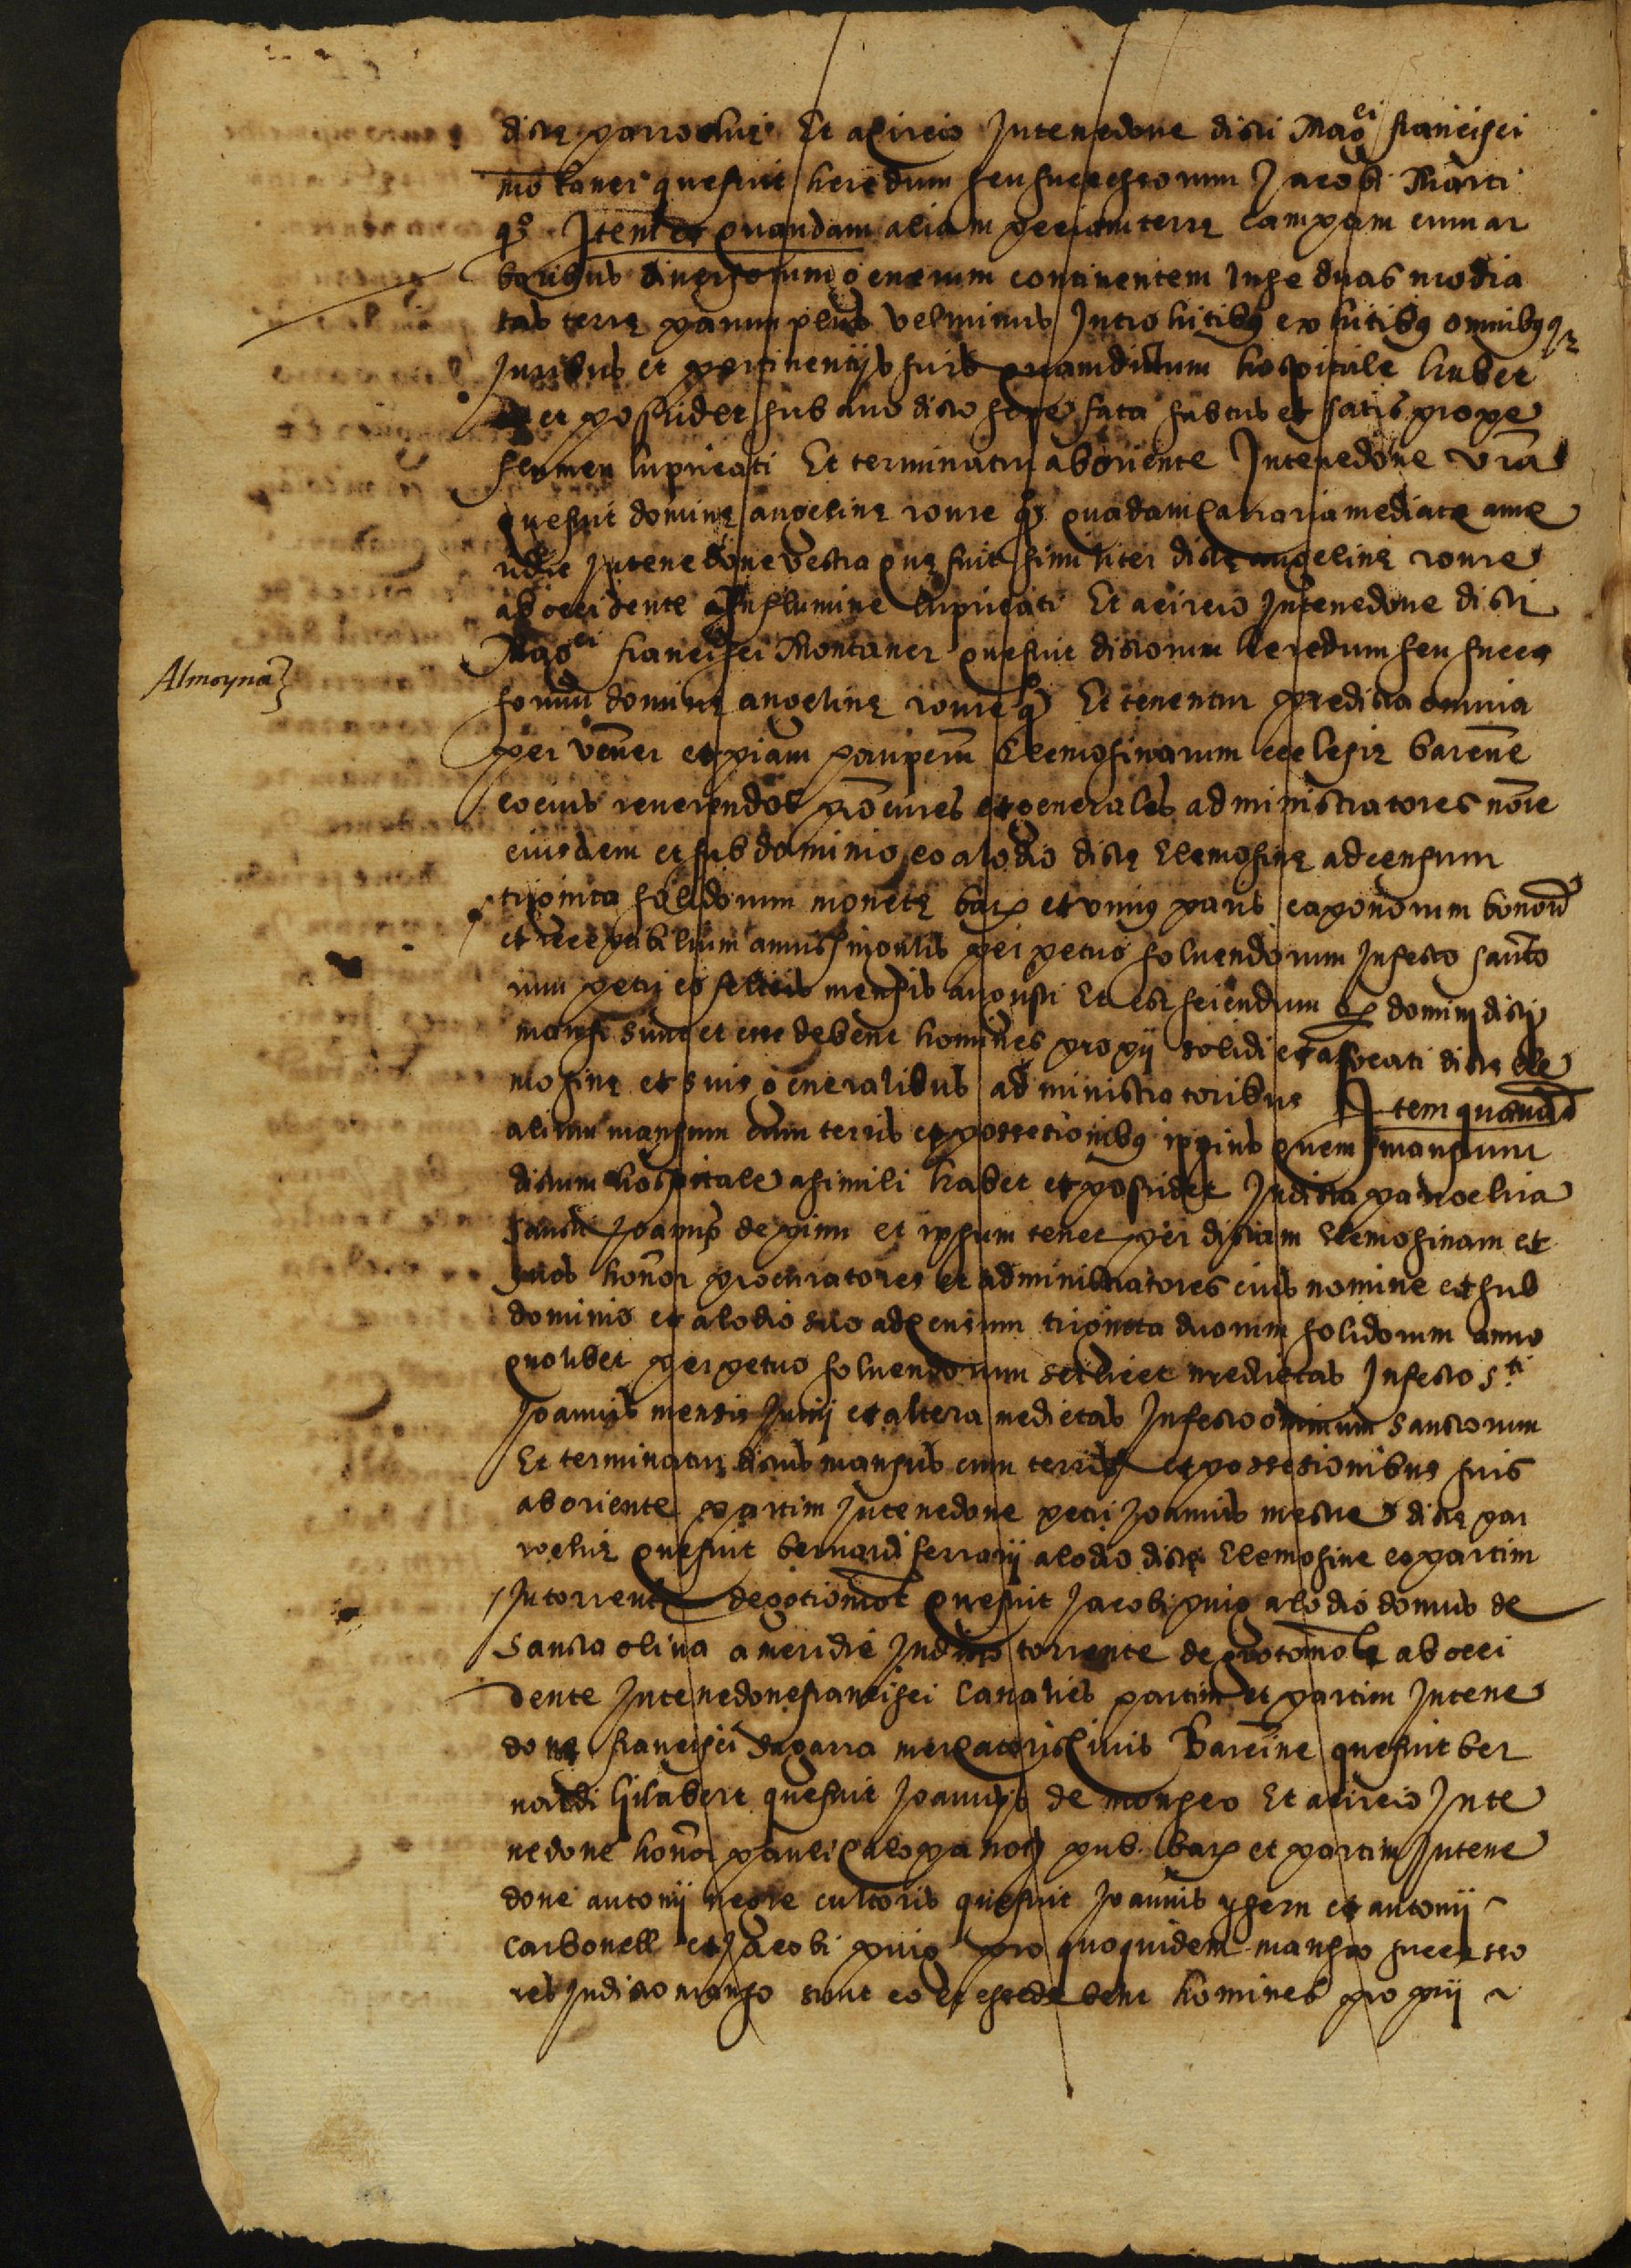 dictę parrochię Et a circio In tenedone dicti Mag.ci francisci
montaner que fuit heredum seu successorum Jacobi Marti
qo. Item et quandam aliam peciam terrę campam cum ar
boribus diversorum generum continentem in se duas modia
tas terrę parum plus vel minus Introhitibus exhitibus omnibusqz
Juribus et pertinentijs suis quam dictum hospitale habet
et possidet sub ano dicto satis prope
flumen lupricati Et terminatur ab oriente In tenedone vra
que fuit dominę angelinę roure qo. quadam carraria mediate a me
ridie In tenedone vestra quę fuit similiter dictę angelinę roure
ab occidente In flumine lupricati Et a circio In tenedone dicti
Mag.ci francisci Montaner que fuit dictorum heredum seu succes
Almoyna
sorum dominę angelinę roure qo. Et tenentur predicta omnia
per vener et piam pauperum Elemosinarum ecclesię barcñe
eo eius reverendos procures et generales administratores noīe
eiusdem et sub dominio eo alodio dictę elemosinę ad censum
triginta solidorum monetę barħ et unius paris caponorum bonorū
et receptibilium annis singulis perpetuo solvendorum In festo sancto
rum petri eo felicis mensis augusti Et est sciendum q domini dicti
mansi sunt et esse debent homines proprij solidi et afocati dictę ele
mosinę et suis generalibus administratoribus Item quendā
alium mansum cum terris et possesionibus ipsius quem mansum
dictum hospitale a simili habet et possidet In dicta parrochia
Sancti Joannis de pinu et ipsum tenet per dictam elemosinam et
suos honor procuratores et administratores eius nomine et sub
dominio et alodio suo ad censum triginta duorum solidorum anno
quolibet perpetuo solvendorum scilicet medietas In festo s.ti
Joannis mensis Junij et altera medietas In festo omnium sanctorum
Et terminatur dictus mansus cum terris et possesionibus suis
ab oriente partim In tenedone petri Joannis mestre dictę par
rochię que fuit bernardi ferrarij alodio dictę elemosine eo partim
In torrente de que fuit Jacobi puig alodio domus de
Sancta oliva a meridie In dicto torrente de ab occi
dente In tenedone francisci Canalies partim et partim In tene
done francisci Sagarra mercatoris civis Barcine que fuit ber
nardi Gilabert que fuit Joannis de mongeo Et a circio In te
nedone honor pauli Calopa not pub. barħ et partim In tene
done antonij negre cultoris que fuit Joannis ysern et antonij
carbonell et Jacobi puig pro quoquidem manso successo
res In dicto manso sunt eo et esse debent homines proprij